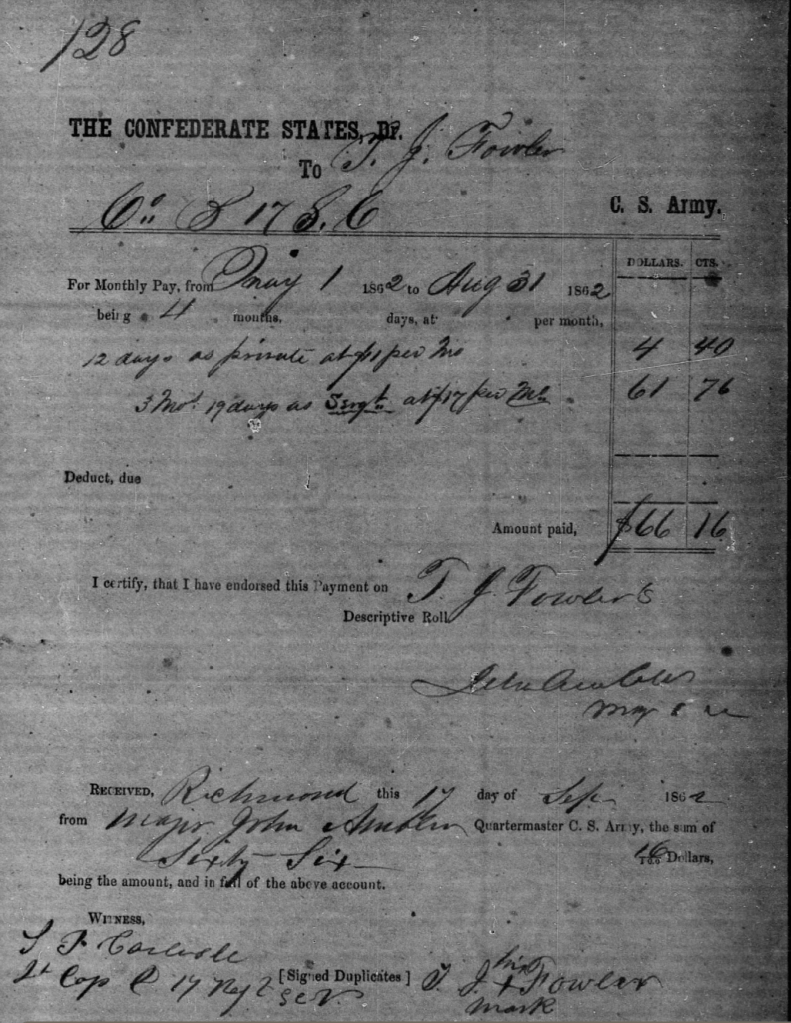 128
THE CONFEDERATE STATES, Dr.
To T. J. Fowler
Co. 17 S. C C. S. Army.
DOLLARS. CTS.
For Monthly Pay, from May 1 1862 to Aug 31 1862
being 4 months, days, at per month,
12 days as private at $11 per Mo 4 40
3 Mos 19 days as Sergt at $17 per Mo 61 76
Deduct, due
Amount paid, $66 16
I certify, that I have endorsed this Payment on T. J Fowlers
Descriptive Roll
John Ambler
Maj &
RECEIVED, Richmond this 17 day of Sep 1862
from Major John Ambler Quartermaster C. S. Army, the sum of
Sixty Six 16/100 Dollars,
being the amount, and in full of the above account.
WITNESS,
Carlisle
17 Reg [Signed Duplicates] T. J. his + Fowler
S C V. mark